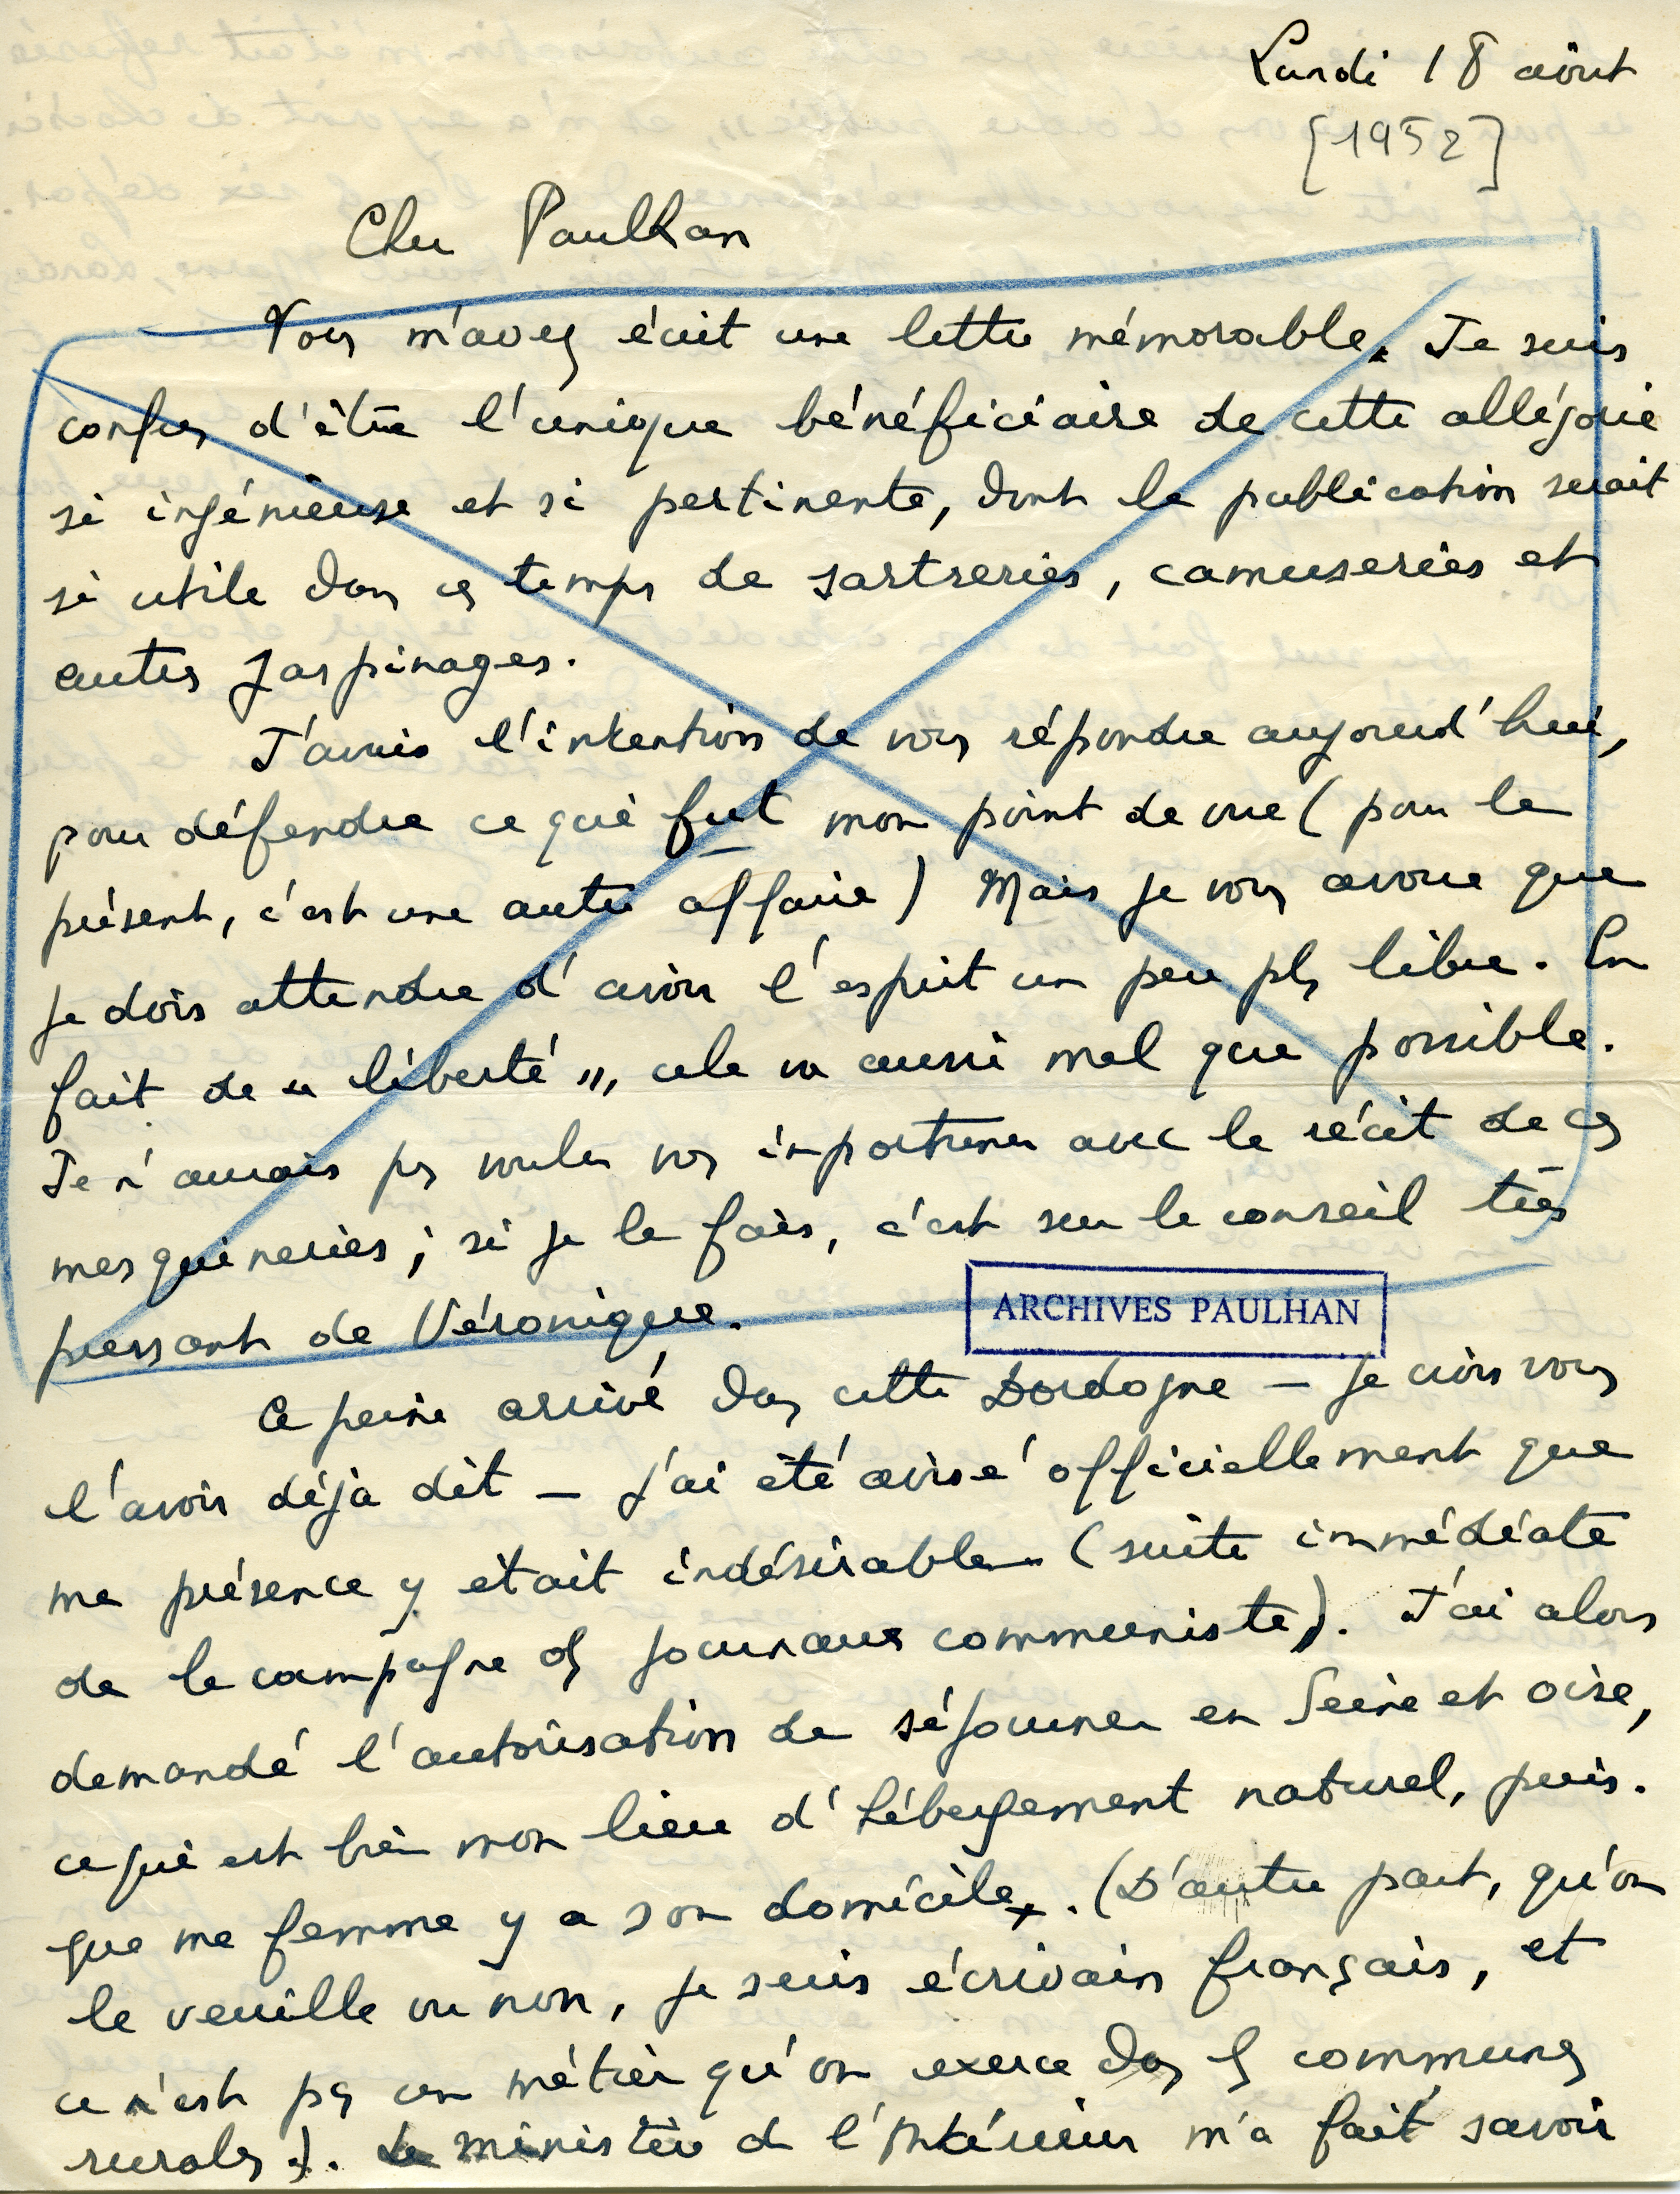 Lundi 18 août
[1952]
Cher Paulhan
Vous m'avez écrit une lettre mémorable. Je suis
confus d'être l'unique bénéficiaire de cette allégorie
si ingénieuse et si pertinente, dont la publication serait
si utile dans ces temps de sartreries, camuseries et
autres jaspinages.
J'avais l'intention de vous répondre aujourd'hui,
pour défendre ce qui fut mon point de vue (pour le
présent, c'est une autre affaire) Mais je vous avoue que
je dois attendre d'avoir l'esprit un peu plus libre. En
fait de « liberté », cela va aussi mal que possible.
Je n'aurais pas voulu vous importuner avec le récit de ces
mesquineries ; si je le fais, c'est sur le conseil très
pressant de Véronique.
ARCHIVES PAULHAN
A peine arrivé dans cette Dordogne — je crois vous
l'avoir déjà dit — j'ai été avisé officiellement que
ma présence y était indésirable (suite immédiate
de la campagne des journaux communistes). J'ai alors
demandé l'autorisation de séjourner en Seine et Oise,
ce qui est bien mon lieu d'hébergement naturel, puis-
que ma femme y a son domicile. (D'autre part, qu'on
le veuille ou non, je suis écrivain français, et
ce n'est pas un métier qu'on exerce dans les communes
rurales). Le ministère de l'Intérieur m'a fait savoir